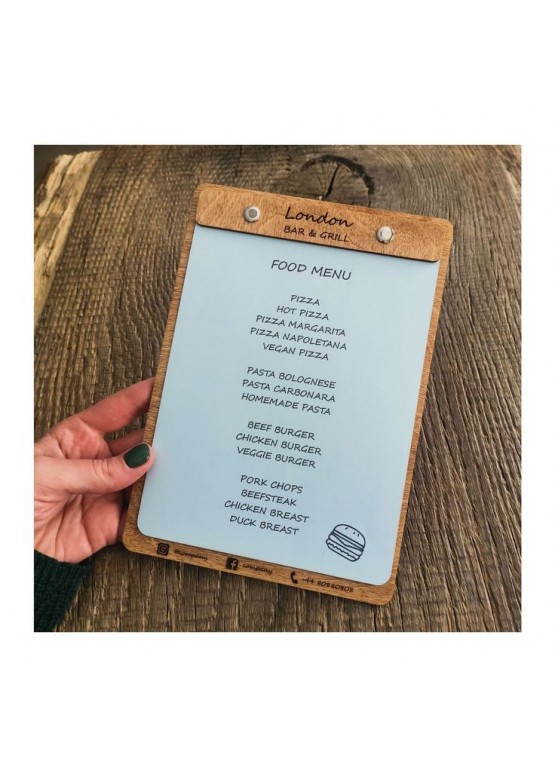 London
BAR & GRILL
FOOD MENU
PIZZA
HOT PIZZA
PIZZA MARGARITA
PIZZA NAPOLETANA
VEGAN PIZZA
PASTA BOLOGNESE
PASTA CARBONARA
HOMEMADE PASTA
BEEF BURGER
CHICKEN BURGER
VEGGIE BURGER
PORK CHOPS
BEEFSTEAK
CHICKEN BREAST
DUCK BREAST